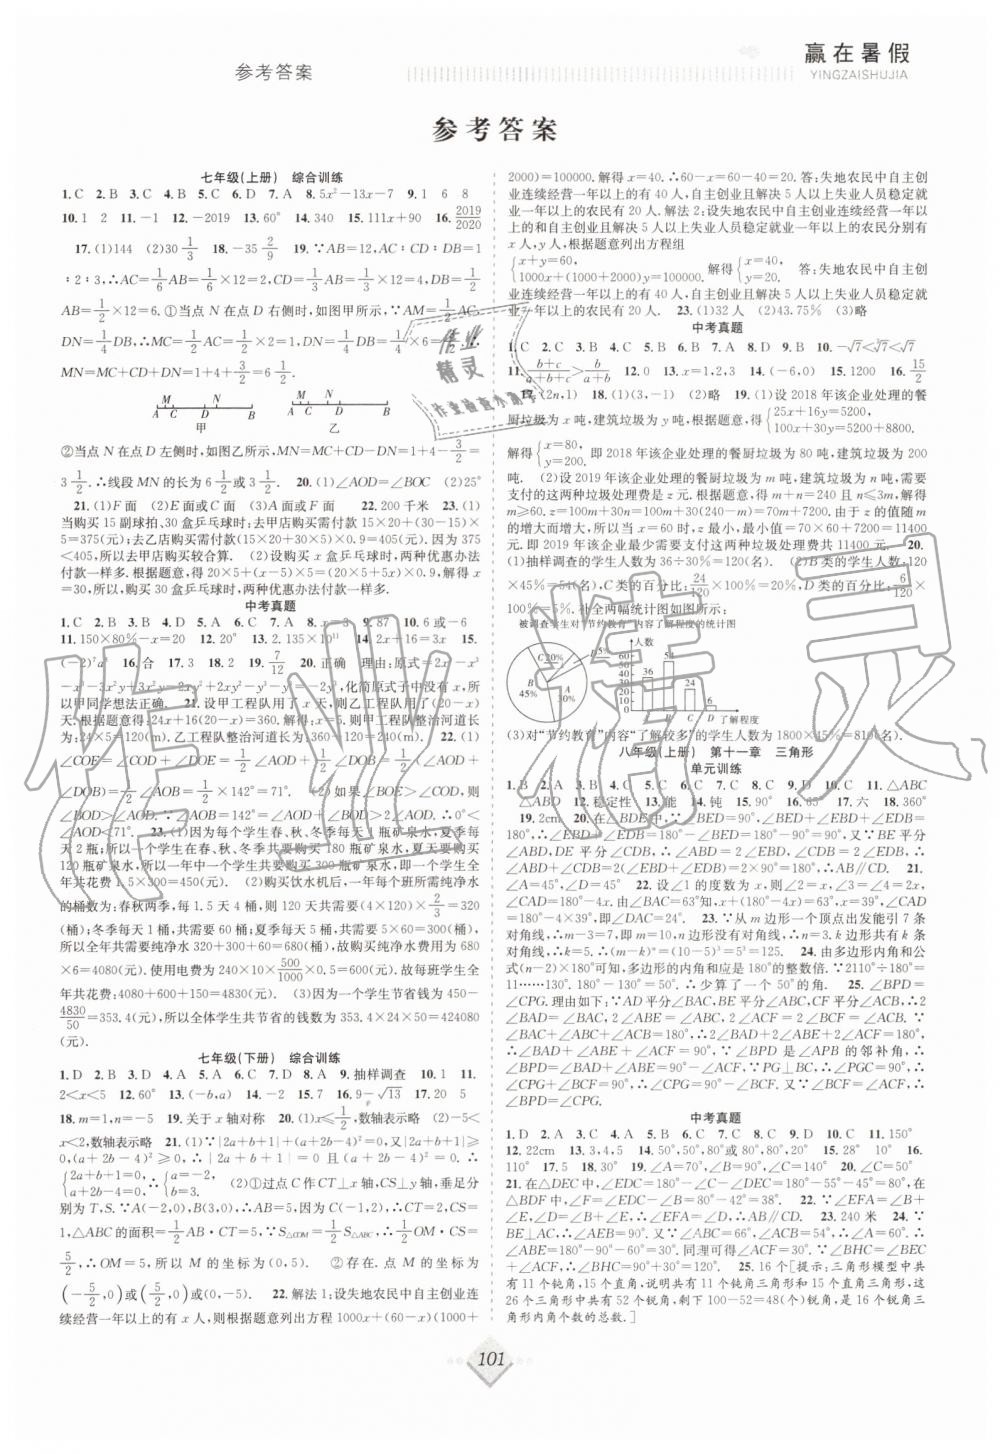 参考答案
赢在暑假
YINGZAISHUJIA
参考答案
七年级(上册) 综合训练
1.C 2.B 3.C 4.B 5.C 6.D 7.A 8.5x²-13x-7 9.1 6 8
10.1 2 11.-1 12.-2019 13.60° 14.340 15.111x+90 16.2019/2020
17.(1)144 (2)30 1/3 18.-35 2/9 19.∵AB=12,AC∶CD∶DB=1
∶2∶3,∴AC=1/6AB=1/6×12=2,CD=1/3AB=1/3×12=4,DB=1/2
AB=1/2×12=6.①当点N在点D右侧时,如图甲所示,∵AM=1/2AC,
DN=1/4DB,∴MC=1/2AC=1/2×2=1,DN=1/4DB=1/4×6=3/2,∴
MN=MC+CD+DN=1+4+3/2=6 1/2.
A M C D N B
甲
A M C N D B
乙
②当点N在点D左侧时,如图乙所示,MN=MC+CD-DN=1+4-3/2=
3 1/2.∴线段MN的长为6 1/2或3 1/2. 20.(1)∠AOD=∠BOC (2)25°
21.(1)F面 (2)E面或C面 (3)A面或F面 22.200千米 23.(1)
当购买15副球拍、30盒乒乓球时;去甲店购买需付款15×20+(30-15)×
5=375(元);去乙店购买需付款(15×20+30×5)×0.9=405(元).因为375
<405,所以去甲店购买较合算. (2)设购买x盒乒乓球时,两种优惠办法
付款一样多.根据题意,得20×5+(x-5)×5=(20×5+5x)×0.9,解得x
=30,所以,购买30盒乒乓球时,两种优惠办法付款一样多.
中考真题
1.C 2.C 3.B 4.C 5.A 6.B 7.A 9.87 10.6或-6
11.150×80%-x=20 12.20° 13.2.135×10¹¹ 14.2x+16=3x 15.
16.合 17.3 18.2 19.7/12 20.正确 理由:原式=2x³
所以甲同学想法正确. 21.设甲工程队用了x天,则乙工程队用了(20-x)
天.根据题意得:24x+16(20-x)=360.解得:x=5.则甲工程队整治河道长
为:24×5=120(m),乙工程队整治河道长为:360-120=240(m). 22.(1)
∠COF=∠COD+∠DOF=1/2∠AOD+1/2∠BOD=1/2(∠AOD
+∠DOB)=1/2∠AOB=1/2×142°=71° (2)如果∠BOC>∠AOD,则
∠AOD<71°. 23.(1)因为每个学生春、秋、冬季每天1瓶矿泉水,夏季每
天2瓶;所以一个学生在春、秋、冬季共要购买180瓶矿泉水,夏天要购买
120瓶矿泉水,所以一年中一个学生共要购买300瓶矿泉水,即一个学生全
年共花费1.5×300=450(元). (2)购买饮水机后,一年每个班所需纯净水
的桶数为:春秋两季,每1.5天4桶,则120天共需要(4×120)×2/3=320
(桶);冬季每天1桶,共需要60桶;夏季每天5桶,共需要5×60=300(桶),
所以全年共需要纯净水320+300+60=680(桶),故购买纯净水费用为680
×6=4080(元).使用电费为240×10×500/1000×0.5=600(元).故每班学生全
年共花费:4080+600+150=4830(元). (3)因为一个学生节省钱为450-
4830/50=353.4(元),所以全体学生共节省的钱数为353.4×24×50=424080
(元).
七年级(下册) 综合训练
1.D 2.B 3.D 4.A 5.A 6.C 7.B 8.A 9.抽样调查 10.1 11.
2<x<5 12.60° 13.(-b,a) 14.-2 15.7 16.9-√13 17.20 5
18.m=1,n=2 19.关于x轴对称 20.(1)x≤1/2,数轴表示略 (2)-5<
x<2,数轴表示略 21.(1)∵|2a+b+1|+(a+2b-4)²=0,又|2a+b+1|≥
0,(a+2b-4)²≥0,∴|2a+b+1|=0且(a+2b-4)²=0.∴
{2a+b+1=0,a+2b-4=0,∴{a=-2,b=3. (2)①过点C作CT⊥x轴,CS⊥y轴,垂足分
别为T,S.∵A(-2,0),B(3,0),∴AB=5,因为C(-1,2),∴CT=2,CS=
1,△ABC的面积=1/2AB·CT=5,∵S△COM=1/2S△ABC,∴1/2OM·CS=
5/2,∴OM=5,所以M的坐标为(0,5). ②存在.点M的坐标为
(-5/2,0)或(5/2,0)或(0,-5). 22.解法1:设失地农民中自主创业连
续经营一年以上的有x人,则根据题意列出方程1000x+(60-x)(1000+
2000)=100000.解得:x=40.∴60-x=60-40=20.答:失地农民中自主创
业连续经营一年以上的有40人,自主创业且解决5人以上失业人员稳定就
业一年以上的农民有20人.解法2:设失地农民中自主创业连续经营一年以上
的和自主创业且解决5人以上失业人员稳定就业一年以上的农民分别有
x人,y人,根据题意列出方程组
{x+y=60,1000x+(1000+2000)y=100000.解得{x=40,y=20.答:失地农民中自主创
业连续经营一年以上的有40人,自主创业且解决5人以上失业人员稳定就
业一年以上的农民有20人. 23.(1)32人 (2)43.75% (3)略
中考真题
1.C 2.C 3.B 4.C 5.A 6.D 7.A 8.D 9.B
11.b+c/a+b+c>b/a+b 12.0 13.x=1,2,3 14.(-6,0) 15.1200 16.15/2
17.(2n,1) 18.(1)(3,-1) (2)略 19.(1)设2018年该企业处理的餐
厨垃圾为x吨,建筑垃圾为y吨,根据题意,得{25x+16y=5200,100x+30y=5200+8800.
解得{x=80,y=200.即2018年该企业处理的餐厨垃圾为80吨,建筑垃圾为200
吨. (2)设2019年该企业处理的餐厨垃圾为m吨,建筑垃圾为n吨,需要
支付的这两种垃圾处理费是z元.根据题意,得m+n=240且n≤3m,解得
m≥60.z=100m+30n=100m+30(240-m)=70m+7200.由于z的值随m
的增大而增大,所以当m=60时,z最小,最小值=70×60+7200=11400
元.即2019年该企业最少需要支付这两种垃圾处理费共11400元. 20.
(1)抽样调查的学生人数为36÷30%=120(名). (2)B类的学生人数:120
×45%=54(名),C类的百分比:24/120×100%=20%,D类的百分比:6/120×
100%=5%.补全两幅统计图如图所示:
被调查学生对“节约教育”内容了解程度的统计图
C 20% D 5% B 45% A 30%
人数 60 50 40 30 20 10 0 36 54 24 6 A B C D 了解程度
(3)对“节约教育”内容“了解较多”的学生人数为1800×45%=810(名).
八年级(上册) 第十一章 三角形
单元训练
1.B 2.A 3.B 4.C 5.C 6.C 7.C 8.D 9.D 10.C 11.△ABC
△ABD 12.稳定性 13.能 14.钝 15.90° 16.65° 17.六 18.360°
19.2cm 20.在△BDE中,∵∠BED=90°,∠BED+∠EBD+∠EDB=
180°,∴∠EBD+∠EDB=180°-∠BED=180°-90°=90°.又∵BE平分
∠ABD,DE平分∠CDB,∴∠ABD=2∠EBD,∠CDB=2∠EDB,
∴∠ABD+∠CDB=2(∠EBD+∠EDB)=2×90°=180°,∴AB∥CD. 21.
∠A=45°,∠D=45° 22.设∠1的度数为x,则∠2=x,∠3=∠4=2x,
∠CAD=180°-4x.由∠BAC=63°知,x+(180°-4x)=63°,x=39°,∠CAD
=180°-4×39°,即∠DAC=24°. 23.∵从m边形一个顶点出发能引7条
对角线,∴m-3=7,即m=10,n边形没有对角线,∴n=3.k边形共有k条
对角线,∴k=5.∴(m-k)ⁿ=(10-5)³=5³=125. 24.由多边形内角和公
式(n-2)×180°可知,多边形的内角和应是180°的整数倍.∵2110°÷180°=
11……130°.而180°-130°=50°.∴少算了一个50°的角. 25.∠BPD=
∠CPG.理由如下:∵AD平分∠BAC,BE平分∠ABC,CF平分∠ACB,∴2
∠BAD=∠BAC,2∠ABE=∠ABC,2∠ACF=∠ACB.∵
∠BAC+∠ABC+∠ACB=180°,∴2∠BAD+2∠ABE+2∠ACF=180°,
∴∠BAD+∠ABE+∠ACF=90°,∵∠BPD是△APB的邻补角,∴
∠BPD=∠BAD+∠ABE=90°-∠ACF.∵PG⊥BC,∴∠PGC=90°,∴
∠CPG+∠BCF=90°,∴∠CPG=90°-∠BCF.∵∠ACF=∠BCF,∴
∠BPD=∠CPG.
中考真题
1.D 2.A 3.C 4.B 5.A 6.C 7.C 8.C 9.D 10.C 11.150°
12.22cm 13.3,4,5 14.50°,50°,80°或80°,80°,20° 15.28° 10° 16.
110° 17.5 18.30° 19.∠A=70°,∠B=90°,∠C=140° 20.∠C=50°
21.在△DEC中,∠DEC=180°-∠C-∠DEC=180°-55°-45°=80°,在
△BDF中,∠F=∠EDC-∠B=80°-42°=38°. 22.∵∠EFA=∠B+
∠E,∠D=∠B+∠E,∴∠EFA=∠D,∴AB∥CD. 23.240米 24.∵
BE⊥AC,∴∠AEB=90°.又∵∠ABC=66°,∠ACB=54°,∴∠A=60°.∴
∠ABE=180°-90°-60°=30°.同理可得∠ACF=30°.∵∠BHC=∠BEC
+∠ACF,∴∠BHC=90°+30°=120°. 25.16个[提示:三角形模型中共
有11个钝角,15个直角,说明共有11个钝角三角形和15个直角三角形,这
26个三角形中共有52个锐角,剩下100-52=48(个)锐角,是16个锐角三
角形内角个数的总数.]
101